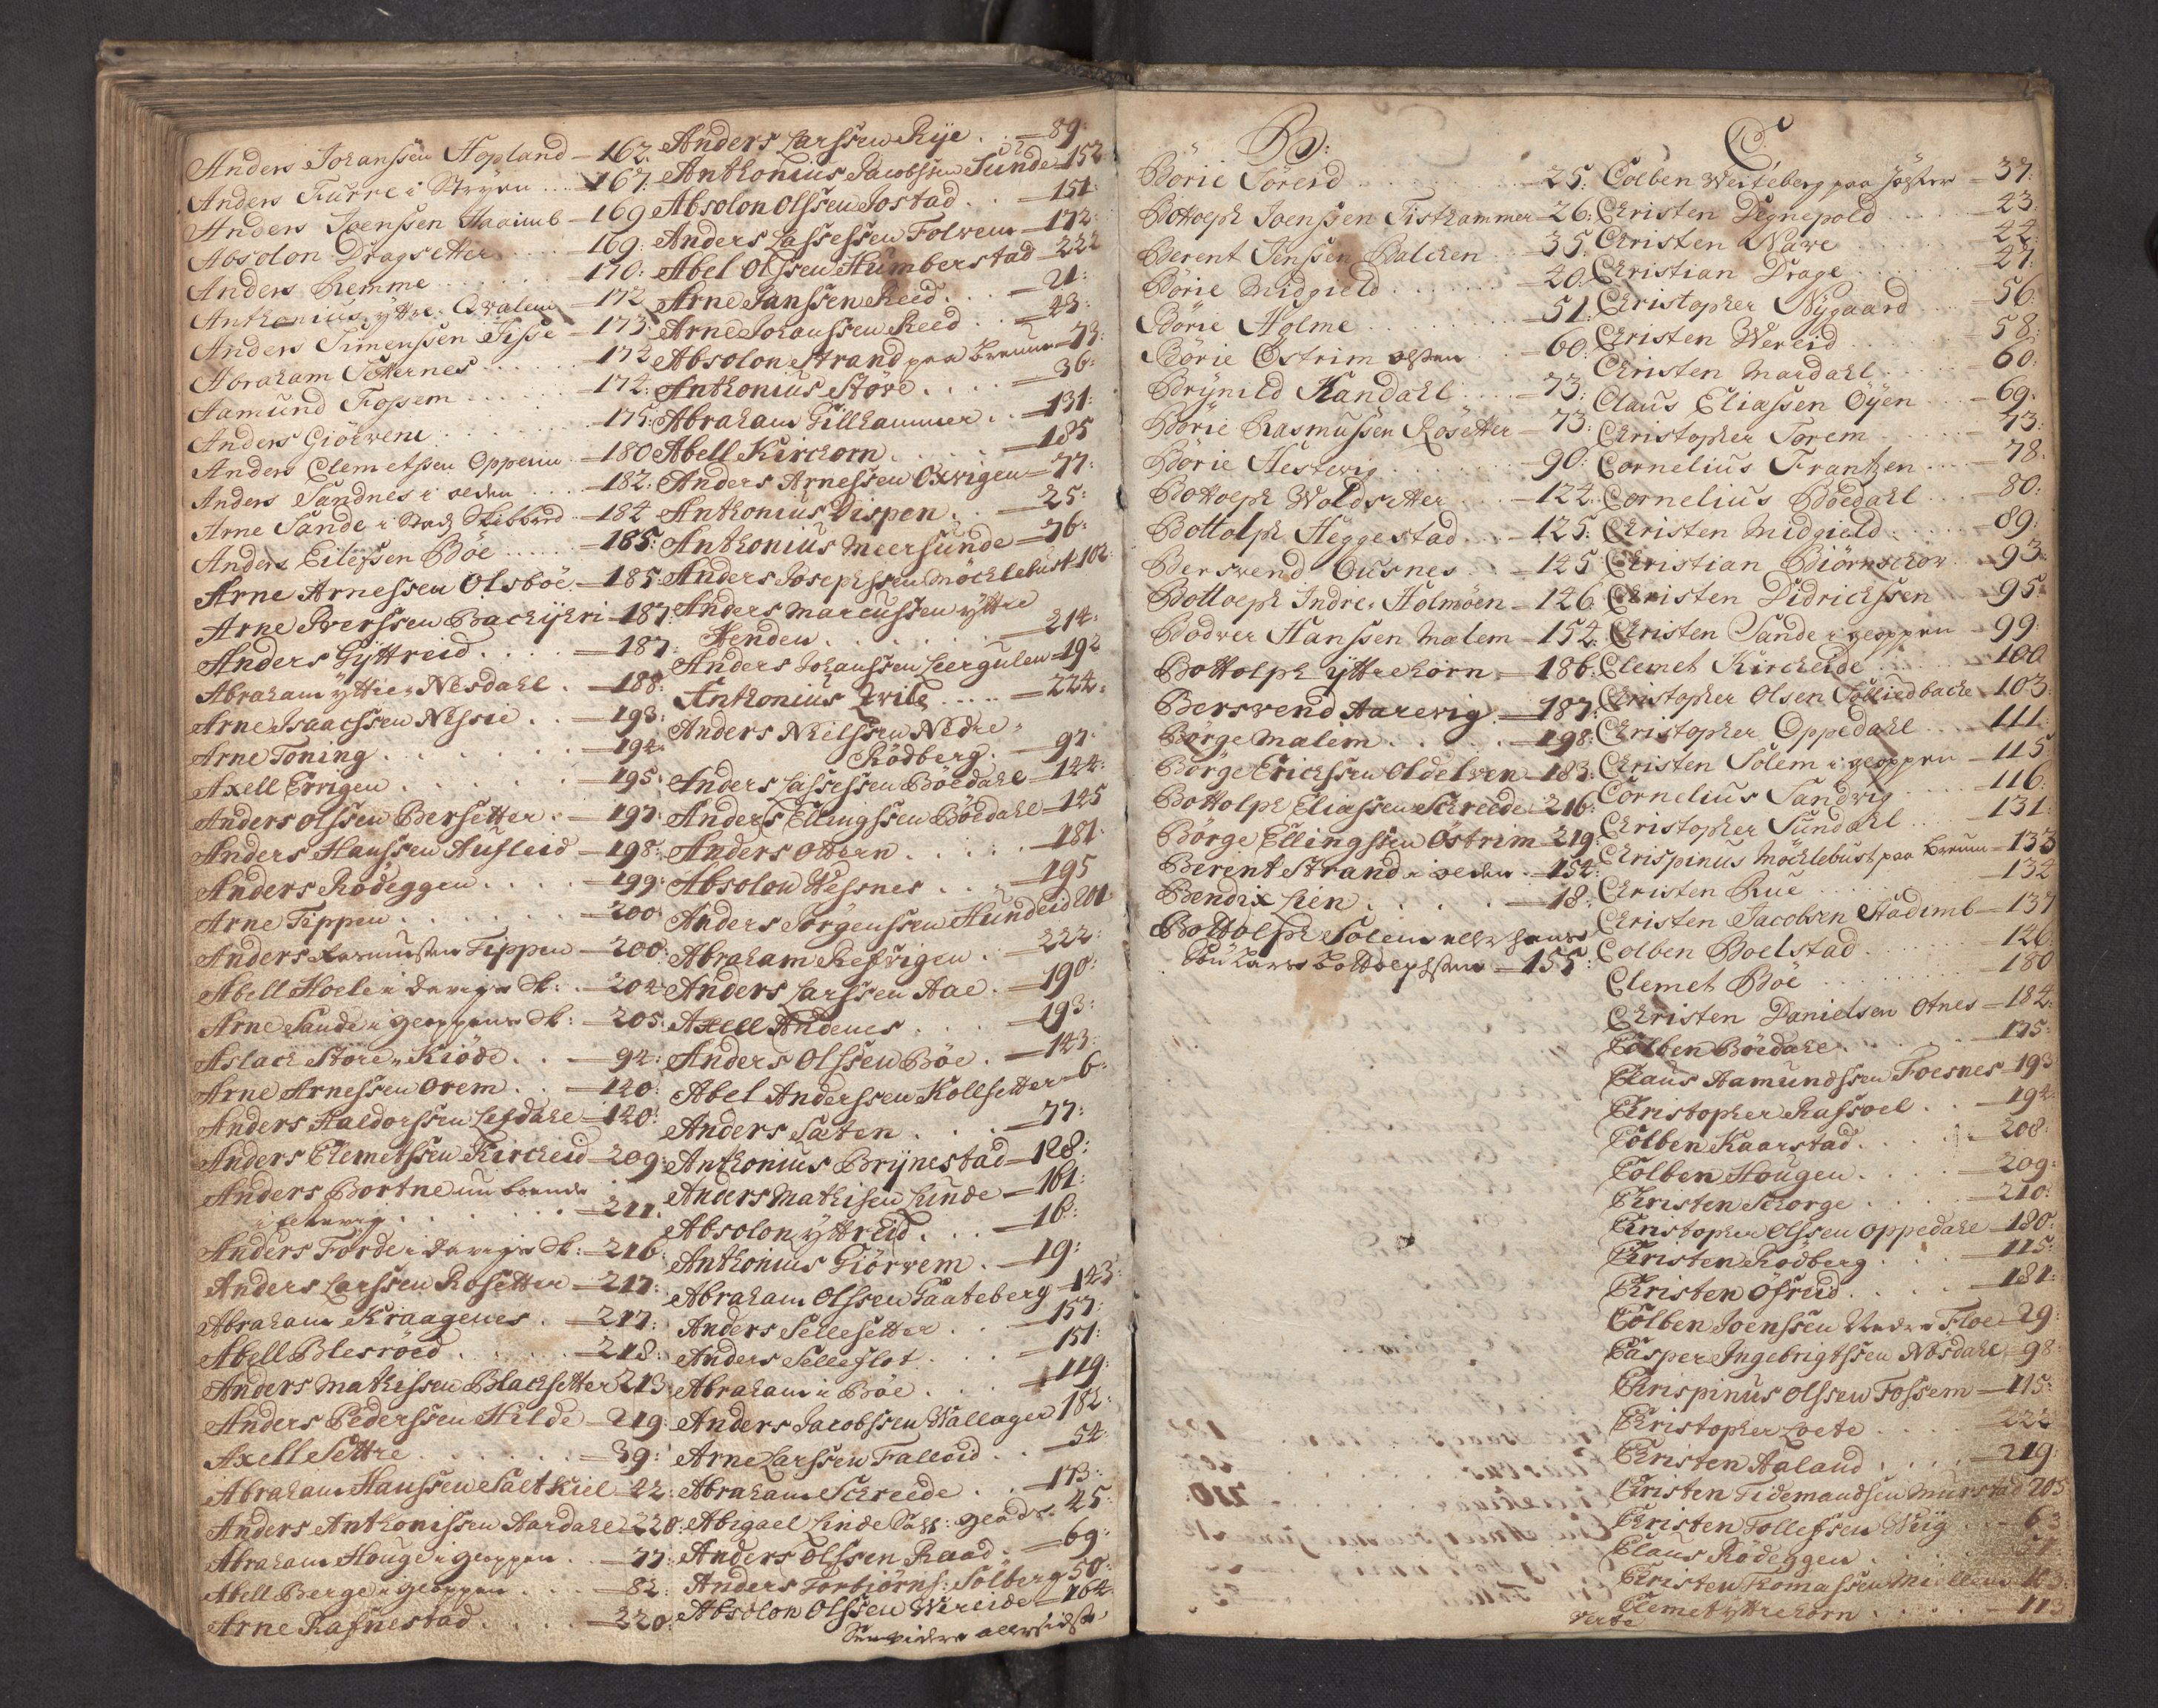 Anders Johanssen Hopland - 162.
Anders Furre i Stryen - 167.
Anders Joenssen Staaimb - 169
Absolon Dragsetter - 169:
Anders Remme - 170:
Anthonius yttre Qvalem - 172
Anders Simenssen Tisse - 173:
Abraham Setternes - 172
Aamund Fossem - 174:
Anders Giörvene - 175:
Anders Clemetssen Oppem - 180
Anders Sandnes i - 182:
Arne Sande i Stads Skibbred - 184
Anders Eilefsen Böe - 185:
Arne Arnessen Olsböe - 185:
Arne Iverssen - 187:
Anders Gÿttreid - 187:
Abraham yttre Nesdahl - 188:
Arne Isaachssen Nissie - 193:
Arne Toning - 194:
Axell Errigen - 195:
Anders Olssen Bersetter - 197:
Anders Hanssen Aufleid - 198:
Anders Rödeggen - 199:
Arne Tippen - 200:
Anders Rasmussen Tippen - 200:
Abell Hoele i - 204
Arne Sande i - 205:
Aslach Store Kiöde - 94:
Arne Arnessen Orem - 140:
Anders Haldorssen Lefdahl - 140:
Anders Clemetssen Kircheid - 209:
Anders Bortne nu boende
i - 211.
Anders Förde i - 216:
Anders Larssen Rosetter - 217:
Abraham Kraagenes - 217:
Abell Blesröed - 218:
Anders Mathissen Blachsetter 213:
Anders Pederssen Hilde - 219:
Axell Settre - 39:
Abraham Hanssen Saltkiel - 22:
Anders Anthonissen Aardahl - 220:
Abraham Houge i - 77:
Abell Berge i - 82:
Arne Rafnestad - 220:
Anders Larssen Rÿe - 89:
Anthonius Jacobssen Sunde - 152
Absolon Olssen Jostad - 151:
Anders Lassessen Folvem - 172:
Abel Olssen Humberstad - 222
Arne Janssen Reed - 21:
Arne Johanssen Reed - 43:
Absolon Strand paa Breum - 73:
Anthonius Störe - 36:
Abraham Gillhammer - 131:
Abell Kirchorn - 185
Anders Arnessen Oxvigen - 77:
Anthonius Dispen - 25:
Anthonius Meersunde - 76:
Anders Josephssen Möchlebust 102:
Anders Marcussen ÿttre
Henden - 214:
Anders Johanssen Leergulen - 192
Anthonius Qvile - 224:
Anders Nielssen Nedre
Rödberg - 97:
Anders Lassessen Böedahl - 144:
Anders Ellingssen Böedahl - 145
Anders Ottern - 181:
Absolon Wessnes - 195
Anders Jörgenssen Hundeid 201
Abraham Refvigen - 222:
Anders Larssen Aae - 190:
Axell Andenes - 193:
Anders Olssen Böe - 143:
Abel Anderssen Kollsetter - 6:
Anders Sæten - 77:
Anthonius Brÿnestad - 128:
Anders Mathisen Lunde - 161:
Absolon yttreid - 16:
Anthonius Giörvem - 19:
Abraham Olssen Gaateberg - 143:
Anders Sellesetter - 157:
Anders Selleslot - 151:
Abraham i Böe - 119:
Anders Jacobssen Wallager 182:
Arne Larssen Falleid - 54
Abraham Schreede - 173:
Abigael Linde - 45:
Anders Olssen Raad - 69:
Anders Torbiörns: Solberg 50:
Absolon Olssen Wereide - 164:
B:
Börie Söreid - 25:
Bottolph Joenssen Fisthammer - 26:
Berent Jenssen Balchen - 35:
Börie Midgield - 40:
Börie Holme - 51:
Börie Östrim - 60:
Brÿnild Handahl - 73:
Börie Rasmussen Rösetter - 73:
Börie Hestevig - 90:
Bottolph Woldsetter - 124:
Bottolph Heggestad - 125:
Bersvend Ousnes - 145
Bottolph Indre Holmöen - 146
Bodver Hanssen Malem - 154:
Bottolph yttrehorn - 186:
Bersvend Aarevig - 187:
Börge Malem - 198:
Börge Erichssen Oldelven - 183:
Bottolph Eliassen Schreede - 216:
Börge Ellingssen Östrim - 219:
Berent Strand i - 154:
Bendix Lien - 18:
Bottolph Solem eller hans
Sön Lars Bottolphssen - 155:
C
Colben Weiteberg paa - 37:
Christen Degnepold - 23:
Christen Nave - 24
Christian Drage - 27:
Christopher Nÿgaard - 56:
Christen Wereid - 58:
Christen Mardahl - 60:
Claus Eliassen Öÿen - 69:
Christopher Torem - 73:
Cornelius Frantzen - 78:
Cornelius Böedahl - 80:
Christen Midgield - 89:
Christian Biörnschor - 93:
Christen Didrichssen - 95:
Christen Sande i - 99:
Clemet Kircheide - 100
Christopher Olsen Solliedbache - 103:
Christopher Oppedahl - 111:
Christen Solem i - 115
Cornelius Sandvig - 116:
Christopher Sundahl - 131:
Chrispinus Möchlebust paa Breum - 133
Christen Rue - 134
Christen Jacobsen Stadimb - 137
Colben Boelstad - 146:
Clemet Böe - 180
Christen Danielsen Otnes - 184:
Colben Böedahl - 175:
Claus Aamundssen Foesnes - 193
Christopher Rassoel - 194:
Colben Kaarstad - 208:
Colben Hougen - 209:
Christen Schorge - 210:
Christopher Olssen Oppedahl - 180:
Christen Rödberg - 115:
Christen Ösrud - 181:
Colben Joenssen Nedre Floe - 29:
Casper Ingebrigtssen Nosdahl - 98:
Chrispinus Olssen Fossem - 115:
Christopher Loete - 222
Christen Aaland - 219:
Christen Tidemandsen Murstad 205
Christen Tollefssen Weÿ - 63
Claus Rödeggen
Christen Thomassen
Clemet yttrehorn - 113